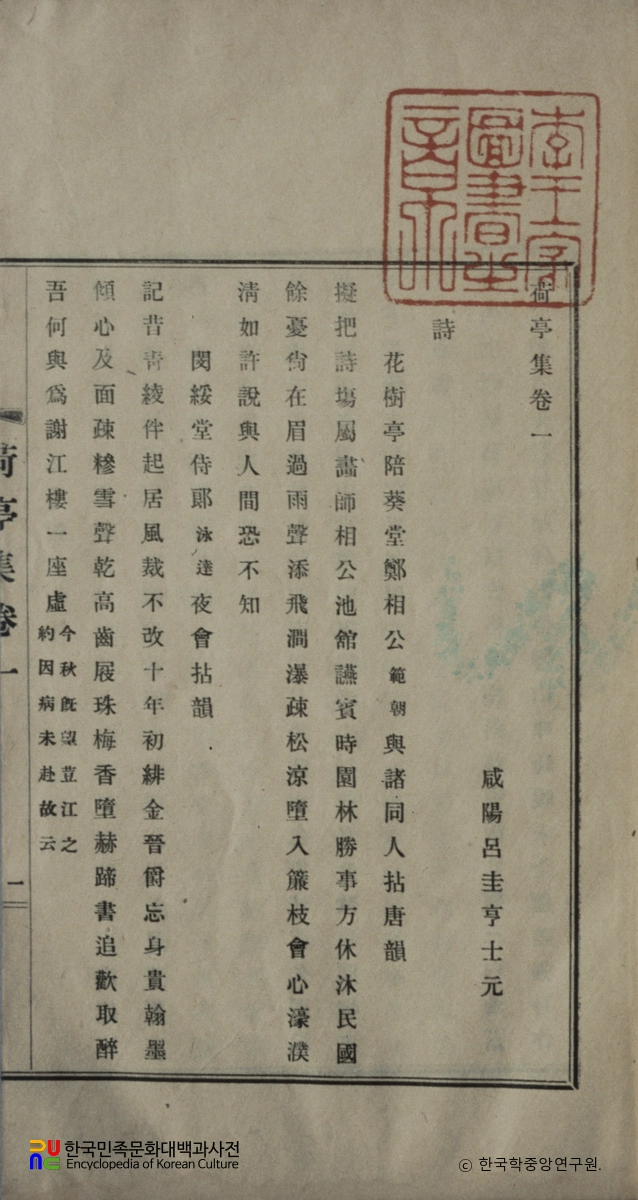 荷亭集卷一
咸陽呂圭亨士元
詩
花樹亭陪葵堂鄭相公範朝與諸同人拈唐韻
擬把詩塲屬畵師相公池舘讌賓時園林勝事方休沐民國
餘憂尙在眉過雨聲添飛澗瀑疎松凉墮入簾枝會心濠濮
淸如許說與人間恐不知
閔綏堂侍郞泳達夜會拈韻
記昔靑綾伴起居風裁不改十年初緋金晉爵忘身貴翰墨
傾心及面疎糝雪聲乾高齒屐珠梅香墮赫蹄書追歡取醉
吾何與爲謝江樓一座虛今秋旣望荳江之約因病未赴故云
荷亭集卷一
一
李王家圖書之章
한국민족문화대백과사전
Encyclopedia of Korean Culture
ⓒ 한국학중앙연구원.